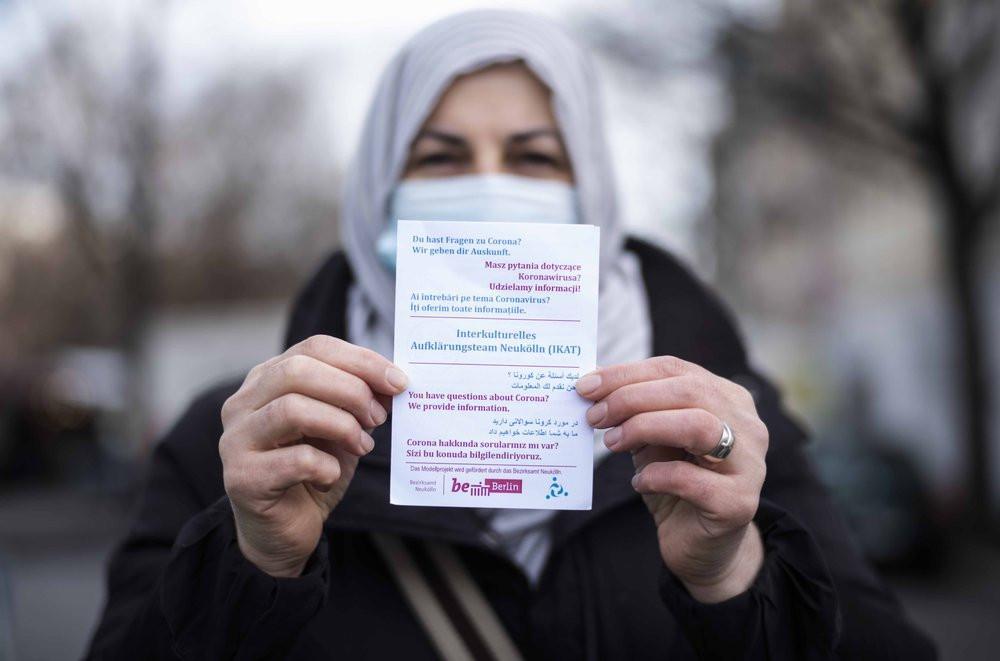 Du hast Fragen zu Corona?
Wir geben dir Auskunft.
Masz pytania dotyczące
Koronawirusa?
Udzielamy informacji!
Ai întrebări pe tema Coronavirus?
Îți oferim toate informațiile.
Interkulturelles
Aufklärungsteam Neukölln (IKAT)
لديك أسئلة عن كورونا ؟
نحن نقدم لك المعلومات
You have questions about Corona?
We provide information.
در مورد کرونا سوالاتی دارید
ما به شما اطلاعات خواهیم داد
Corona hakkında sorularınız mı var?
Sizi bu konuda bilgilendiriyoruz.
Das Modellprojekt wird gefördert durch das Bezirksamt Neukölln.
Bezirksamt
Neukölln
be Berlin